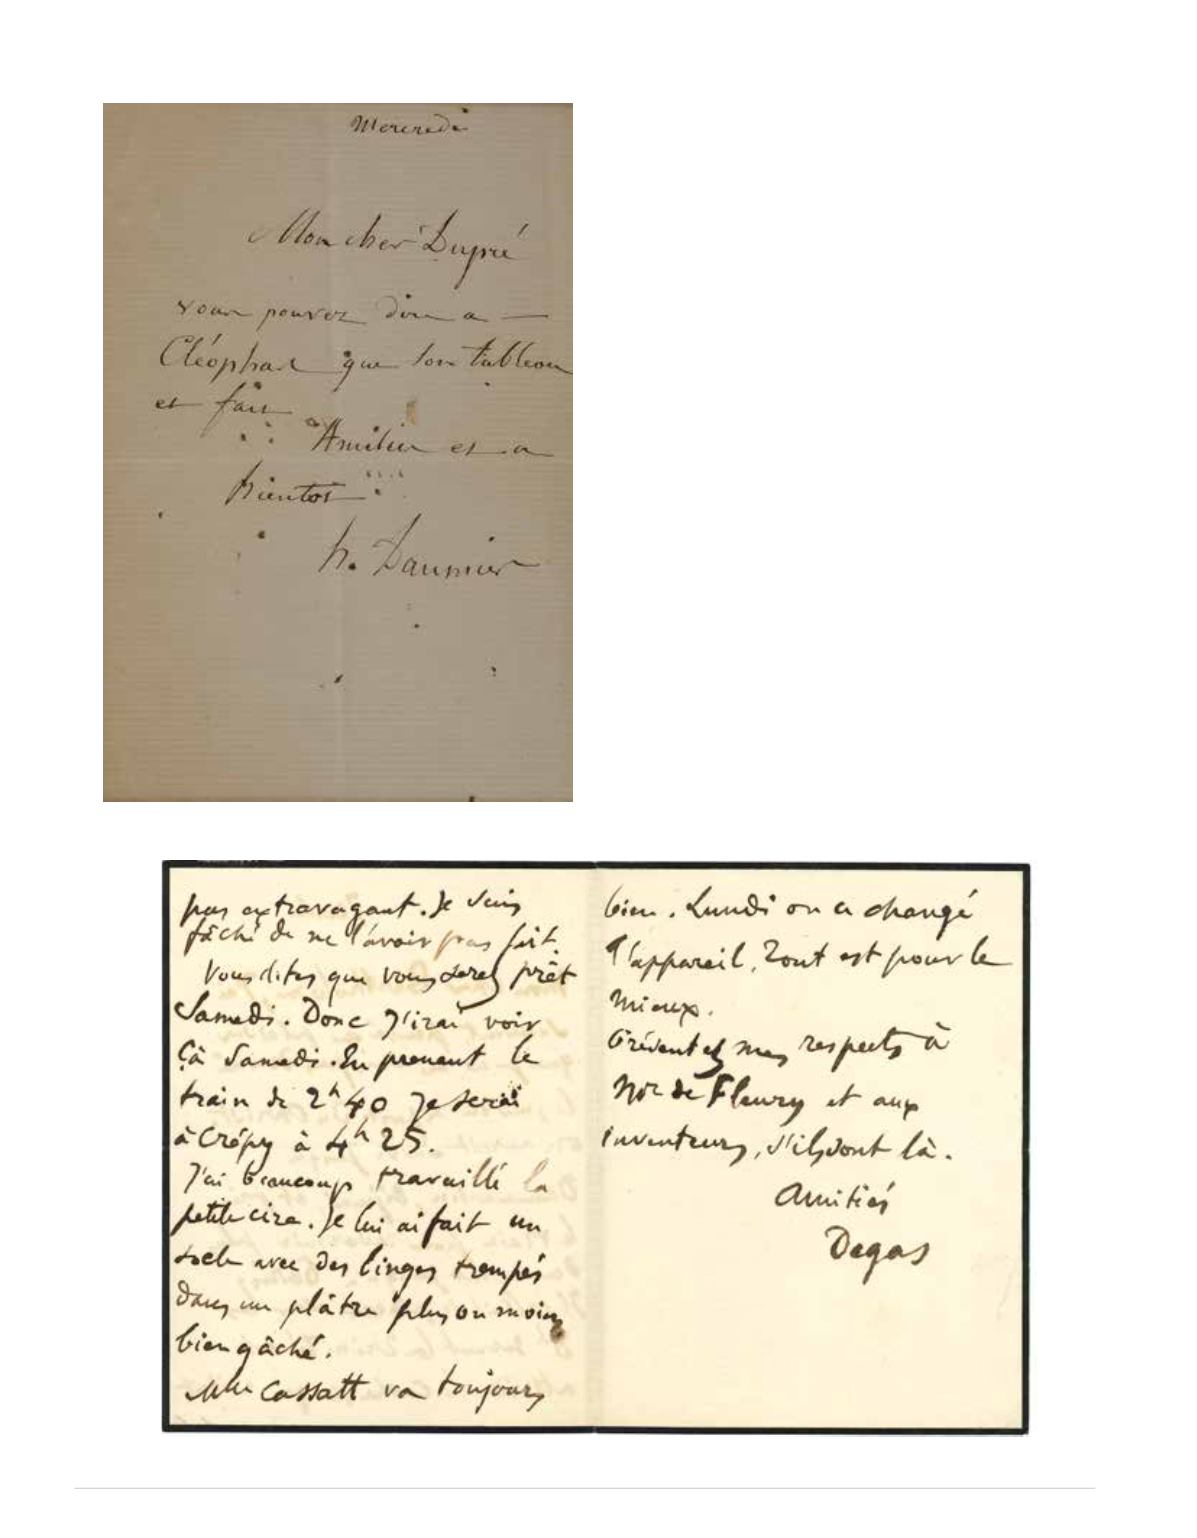 Mercredi
Mon cher Dupré
vous pouvez dire a —
Cléophas que son tableau
est fait
Amitier et a
bientot
h. Daumier
pas extravagant. Je suis
fâché de ne l'avoir pas fait.
Vous dites que vous serez prêt
Samedi. Donc j'irai voir
çà Samedi. En prenant le
train de 2h 40 je serai
à Crépy à 4h 25.
J'ai beaucoup travaillé la
petite cire. Je lui ai fait un
socle avec des linges trempés
dans un plâtre plus ou moins
bien gâché.
Mlle Cassatt va toujours
bien. Lundi on a changé
l'appareil. Tout est pour le
mieux.
Présentez mes respects à
Mr de Fleury et aux
inventeurs, s'ils sont là.
Amitiés
Degas